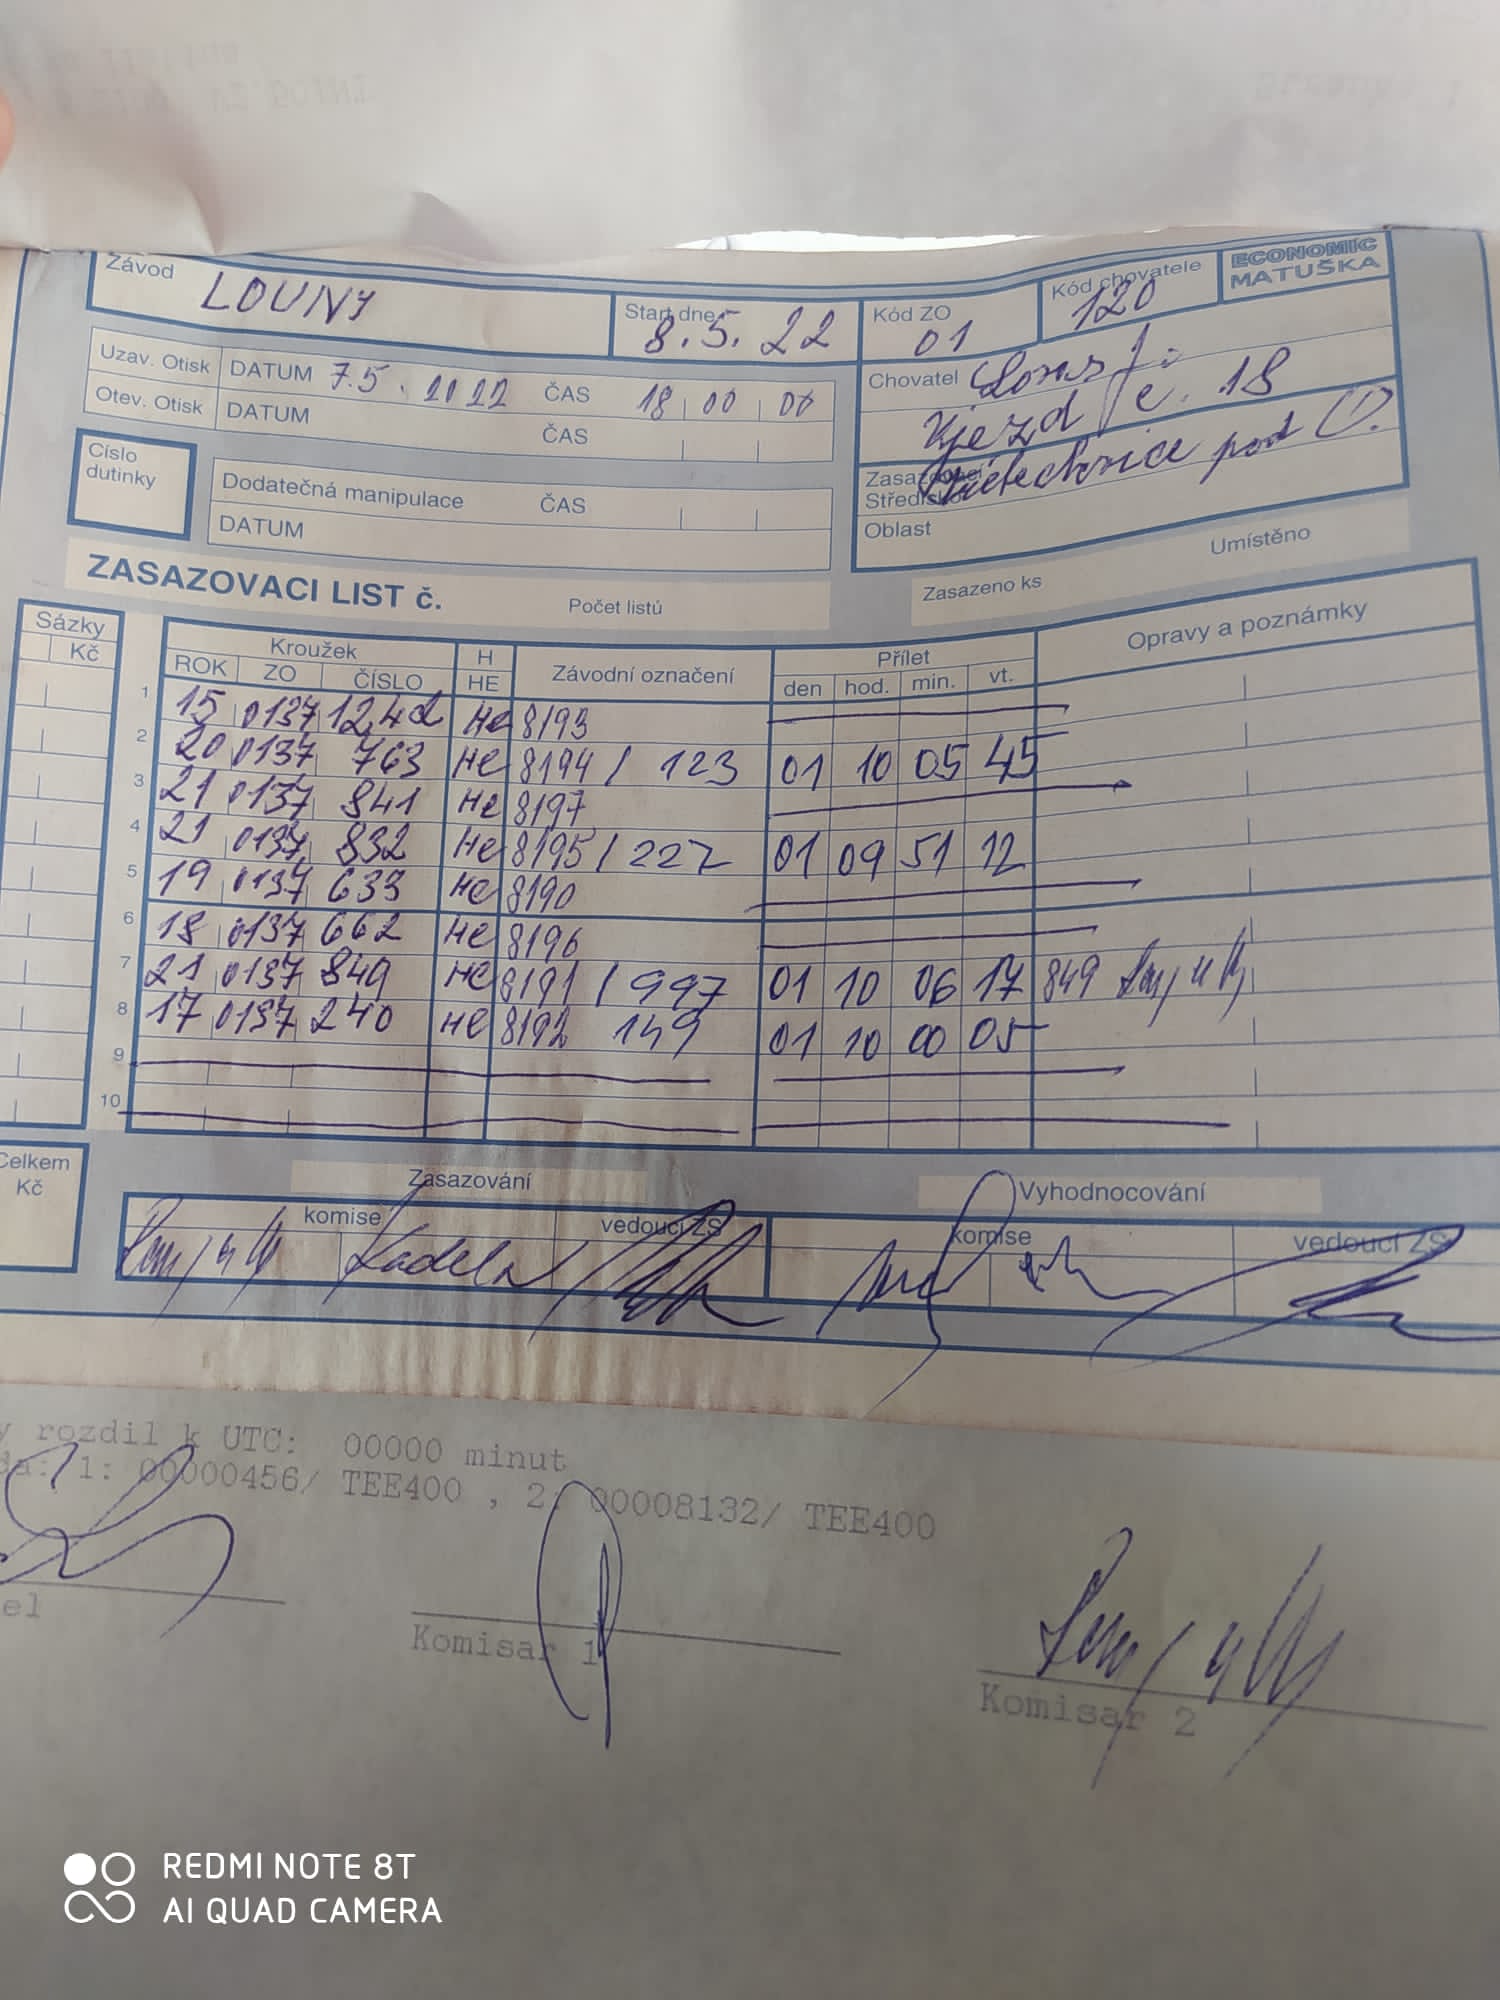 Závod LOUNY
Start dne 8.5.22
Kód ZO 01
Kód chovatele 120
ECONOMIC
MATUŠKA
Uzav. Otisk DATUM 7.5.2022 ČAS 18 00 00
Otev. Otisk DATUM ČAS
Chovatel
Újezd č. 18
Číslo
dutinky
Dodatečná manipulace ČAS
DATUM
Zasazovací
Středisko pod
Oblast
ZASAZOVACI LIST č. Počet listů
Zasazeno ks Umístěno
Sázky
Kč
Kroužek H Závodní označení Přílet Opravy a poznámky
ROK ZO ČÍSLO HE den hod. min. vt.
1 15 0137 1242 HE 8193
2 20 0137 763 HE 8194 / 123 01 10 05 45
3 21 0137 841 HE 8197
4 21 0137 832 HE 8195 / 227 01 09 51 12
5 19 0137 633 HE 8190
6 18 0137 662 HE 8196
7 21 0137 849 HE 8191 / 997 01 10 06 17 849
8 17 0137 240 HE 8192 149 01 10 00 05
9
10
Celkem
Kč
Zasazování Vyhodnocování
komise vedoucí ZS komise vedoucí ZS
y rozdil k UTC: 00000 minut
da: 1: 00000456/ TEE400 , 2: 00008132/ TEE400
el
Komisar 1
Komisar 2
REDMI NOTE 8T
AI QUAD CAMERA